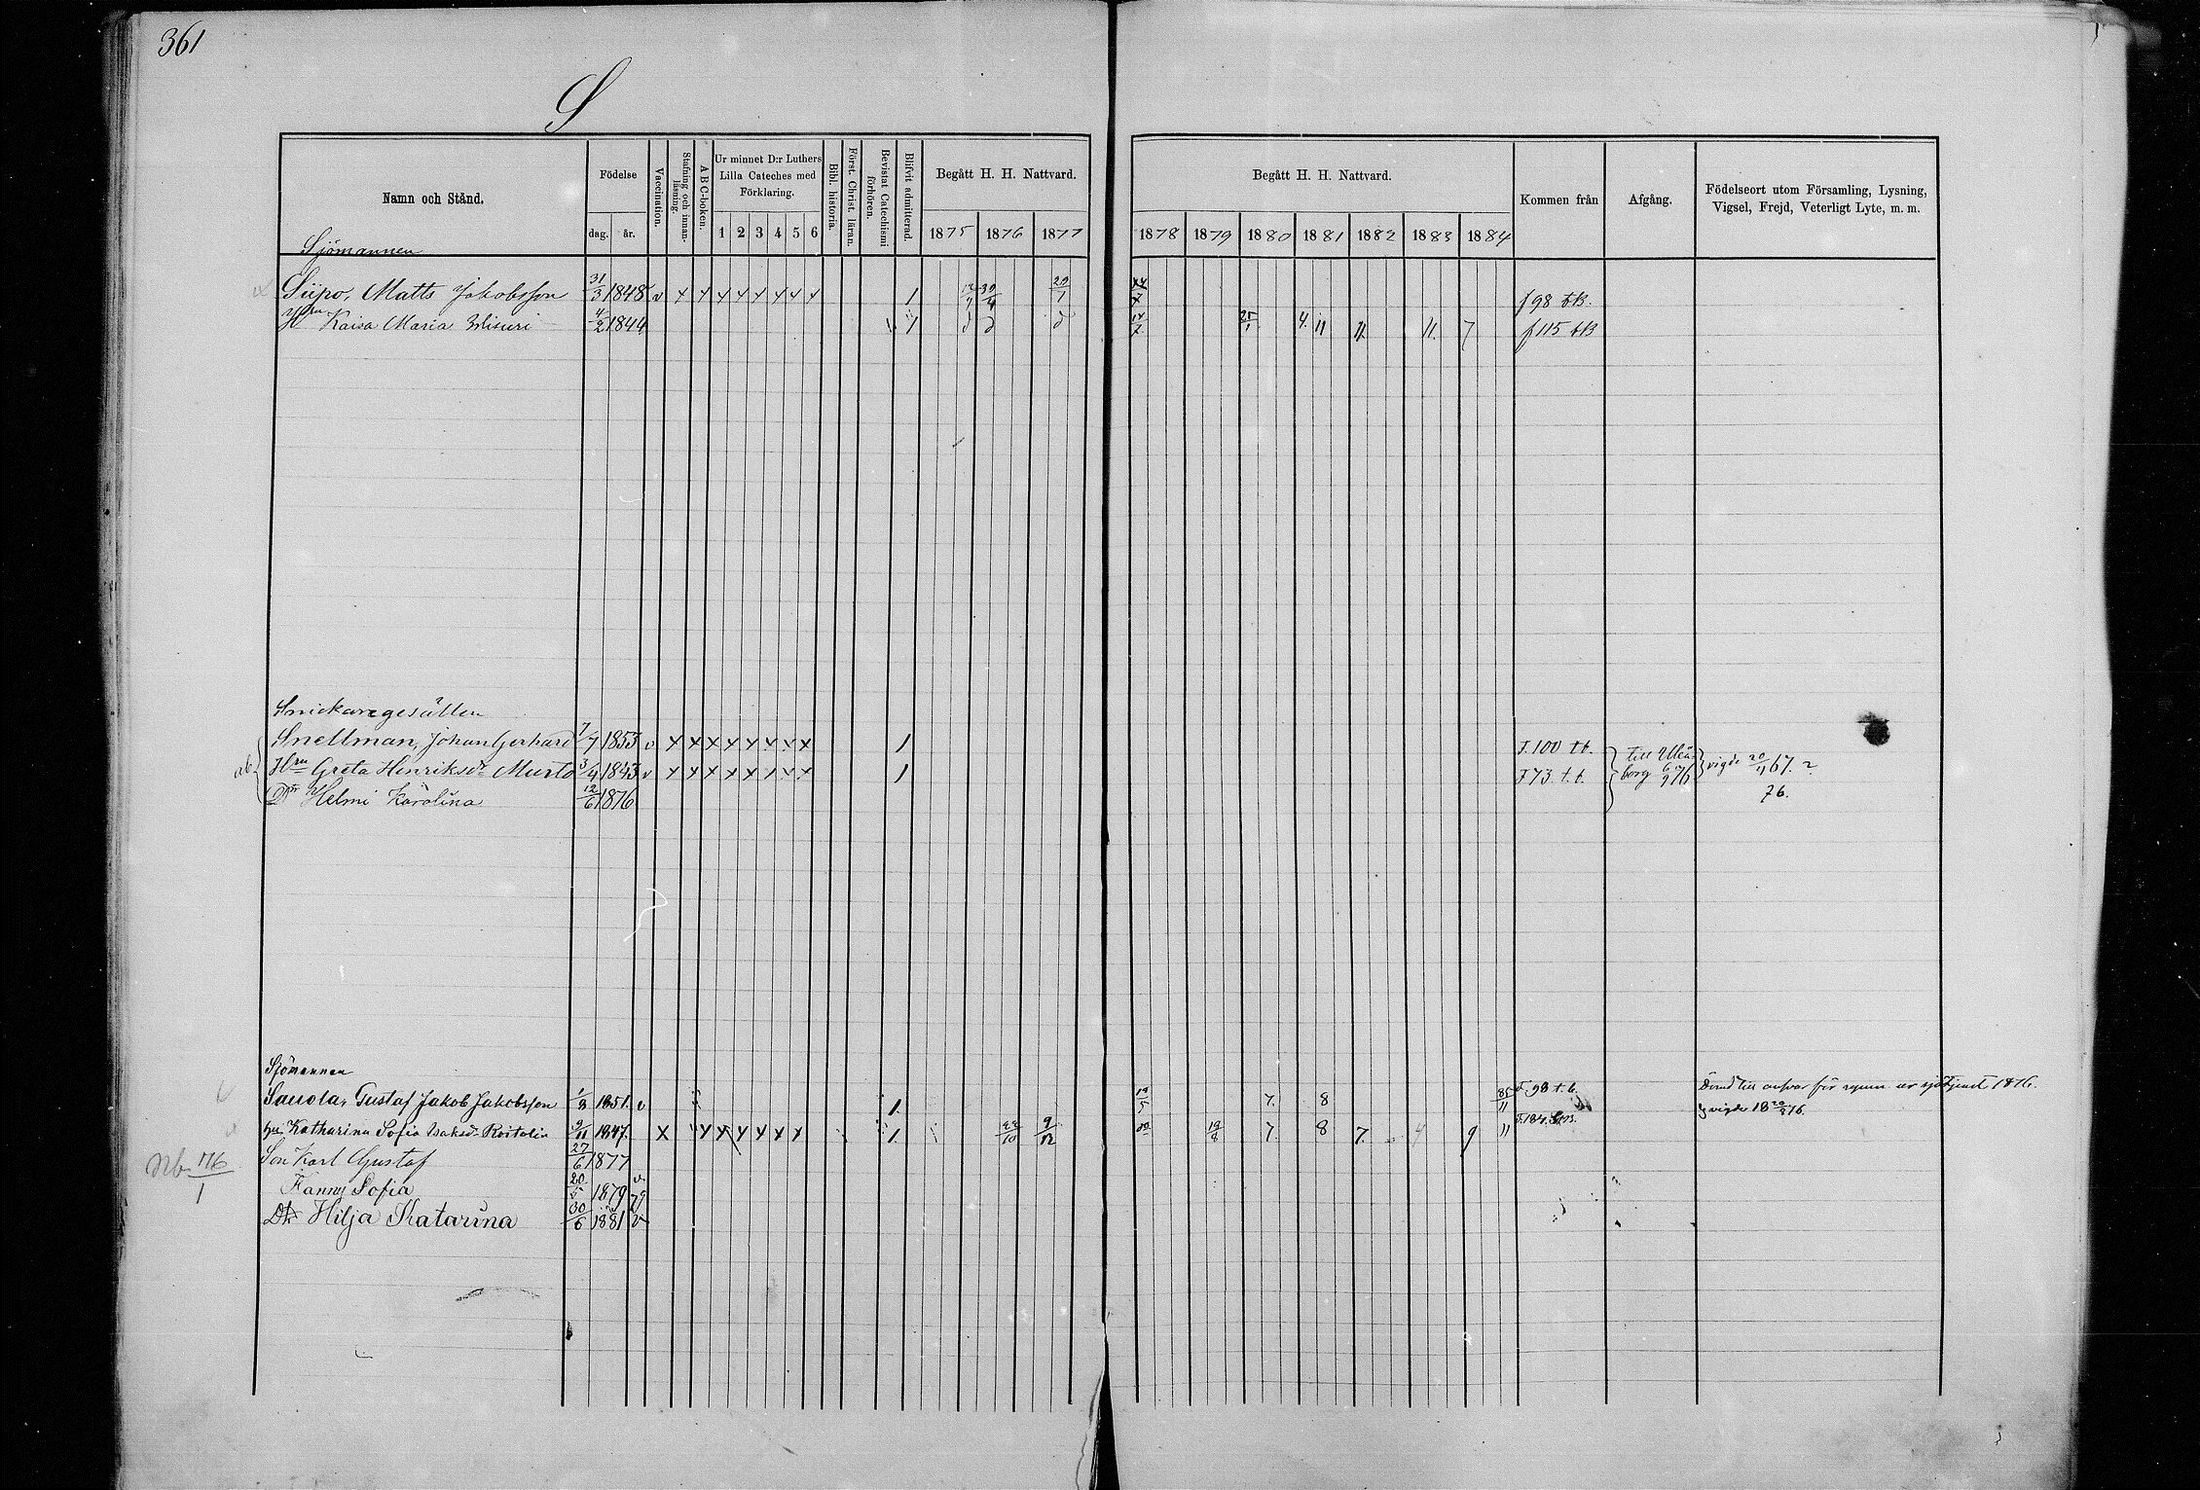 361
S
Namn och Stånd. Födelse Vaccination. Stafning och innan-läsning. A B C-boken. Ur minnet D:r Luthers Lilla Cateches med Förklaring. Bibl. historia. Först. Christ. läran. Bevistat Catechismi förhören. Blifvit admitterad. Begått H. H. Nattvard. Begått H. H. Nattvard. Kommen från Afgång. Födelseort utom Församling, Lysning, Vigsel, Frejd, Veterligt Lyte, m. m.
dag. år. 1 2 3 4 5 6 1875 1876 1877 1878 1879 1880 1881 1882 1883 1884
Sjömannen
Siipo, Matts Jakobsson 31/3 1848 v x x x x x x x x 1 f 98 tB.
Hru Kaisa Maria Misuri 4/2 1844 1 14/7 25/1 4. 11 11. 11. 7 f 115 tB
Snickaregesällen
Snellman, Johan Gerhard 7/7 1853 v x x x x x x x x 1 F. 100 t.b. till Uleå-
Hru Greta Henriksdr Murto 3/4 1843 v x x x x x x x x 1 F 73 t.b. borg 6/9 76 vigde 20/11 67. ?
Dtr Helmi Karolina 12/6 1876 76.
Sjömannen
Sauola, Gustaf Jakob Jakobsson 1/8 1851. v 1. 19/5 7. 8 F. 98 t.b. Dömd till ansvar för rymn ur sjötjenst 1876.
Hu Katharina Sofia Isaksdr Roitola 9/11 1847. x x x x x x x 1. 9/12 19/8 7 8 7. 4 9 11 vigde 18
Son Karl Gustaf 27/6 1877
Nb 76/1
Fanny Sofia 20/5 1879 v 79
Dtr Hilja Katarina 30/6 1881 v